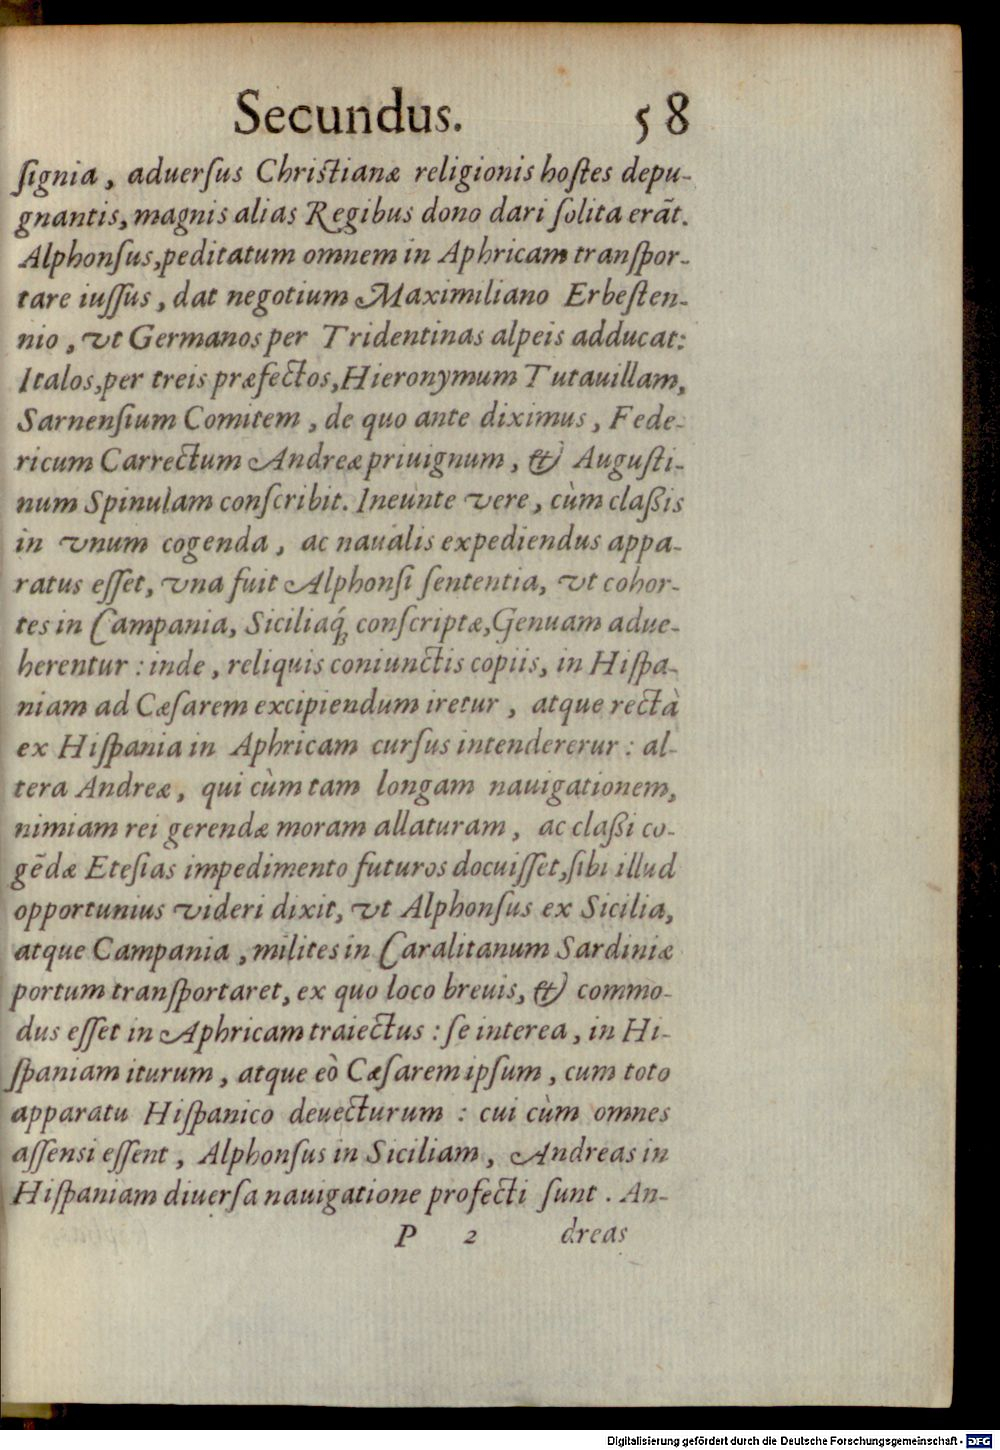 Secundus. 58
ſignia, aduerſus Chriſtianæ religionis hoſtes depu-
gnantis, magnis alias Regibus dono dari ſolita erãt.
Alphonſus, peditatum omnem in Aphricam tranſpor-
tare iuſſus, dat negotium Maximiliano Erbeſten-
nio, vt Germanos per Tridentinas alpeis adducat:
Italos, per treis præfectos, Hieronymum Tutauillam,
Sarnenſium Comitem, de quo ante diximus, Fede-
ricum Carrectum Andreæ priuignum, & Auguſti-
num Spinulam conſcribit. Ineunte vere, cùm claßis
in vnum cogenda, ac naualis expediendus appa-
ratus eſſet, vna fuit Alphonſi ſententia, vt cohor-
tes in Campania, Siciliaq́; conſcriptæ, Genuam adue-
herentur: inde, reliquis coniunctis copiis, in Hiſpa-
niam ad Cæſarem excipiendum iretur, atque rectà
ex Hiſpania in Aphricam curſus intendererur: al-
tera Andreæ, qui cùm tam longam nauigationem,
nimiam rei gerendæ moram allaturam, ac claßi co-
gẽdæ Eteſias impedimento futuros docuiſſet, ſibi illud
opportunius videri dixit, vt Alphonſus ex Sicilia,
atque Campania, milites in Caralitanum Sardiniæ
portum tranſportaret, ex quo loco breuis, & commo-
dus eſſet in Aphricam traiectus: ſe interea, in Hi-
ſpaniam iturum, atque eò Cæſarem ipſum, cum toto
apparatu Hiſpanico deuecturum: cui cùm omnes
aſſensi eſſent, Alphonſus in Siciliam, Andreas in
Hiſpaniam diuerſa nauigatione profecti ſunt. An-
P 2 dreas
Digitalisierung gefördert durch die Deutsche Forschungsgemeinschaft - DFG